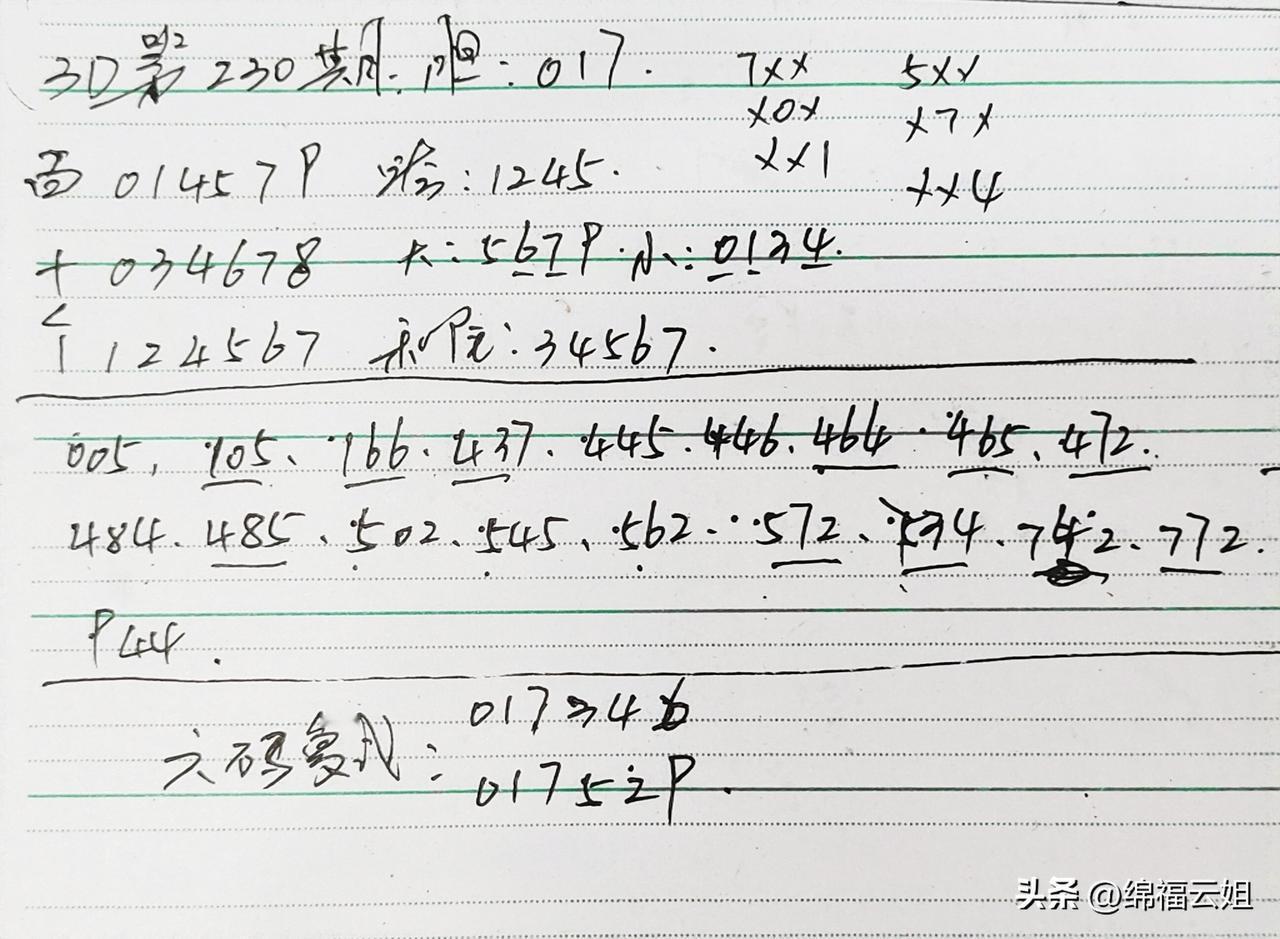 3D第230期: 胆: 017. 7xx 5xx
x0x x7x
xx1 xx4
百 01457P 跨: 1245.
十 034678 大: 567P. 小: 0134.
个 124567 和值: 34567.
005, 105、166. 437. 445. 446. 464. 465、472.
484. 485、502、545、562. 572、574. 742、772.
P44.
六码复式: 017346
01752P.
头条 @绵福云姐